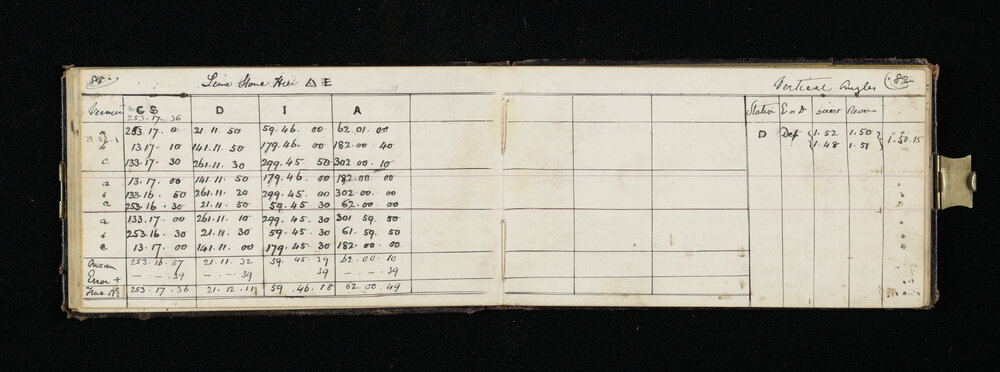 Lime Stone Hill △ E
Vernier C S D I A
253.17.36
a 253.17.0 21.11.50 59.46.00 62.01.00
b 13.17 10 141.11.50 179.46 00 182.00.40
c 133.17.30 261.11.30 299.45 50 302.00.10
a 13.17.00 141.11 50 179.46.00 182.00.00
b 133.16.50 261.11.20 299.45.00 302.00.00
c 253.16.30 21.11.50 59.45.30 62.00.00
a 133.17.00 261.11.10 299.45.30 301 59.50
b 253.16.30 21.11.30 59.45.30 61.59.50
c 13.17.00 141.11.00 179.45.30 182.00.00
Mean 253.16.57 21.11.32 59.45.39 62.00.10
Error + -.-.39 -.-.39 39 -.-.39
True 253.17.36 21.12.11 59.46.18 62.00.49
Vertical Angles
Station Direct Reverse
D Def 1.52 1.50 1.50.15
1.48 1.51